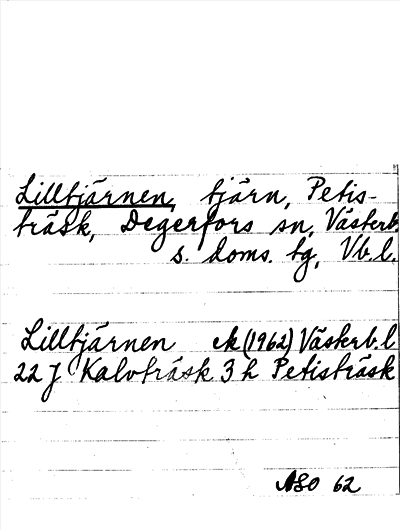 Lilltjärnen, tjärn, Petis-
träsk, Degerfors sn, Västerb.
s. doms. tg, Vb.l.
Lilltjärnen ek (1962) Västerb.l
22 J Kalvträsk 3 h Petisträsk
ASO 62